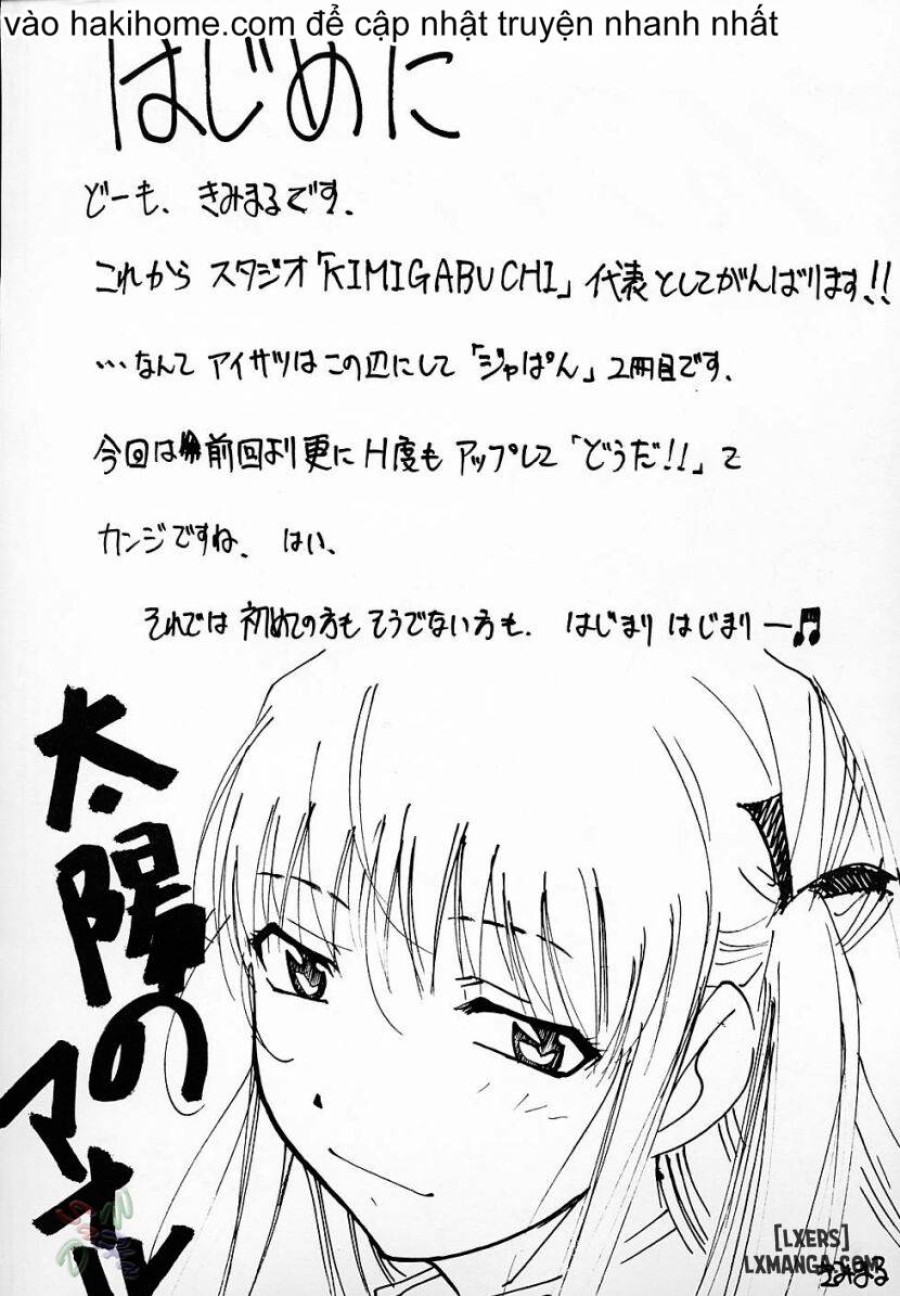 vào hakihome.com để cập nhật truyện nhanh nhất
はじめに
どーも、きみまるです.
これから スタジオ「KIMIGABUCHI」代表としてがんばります!!
…なんて アイサツはこの辺にして「ジャぱん」2冊目です.
今回は前回より更にH度もアップして「どうだ!!」て
カンジですね、はい、
それでは 初めての方も そうでない方も. はじまり はじまり ー♫
太陽の
マオル
[LXERS]
LXMANGA.COM
きみまる